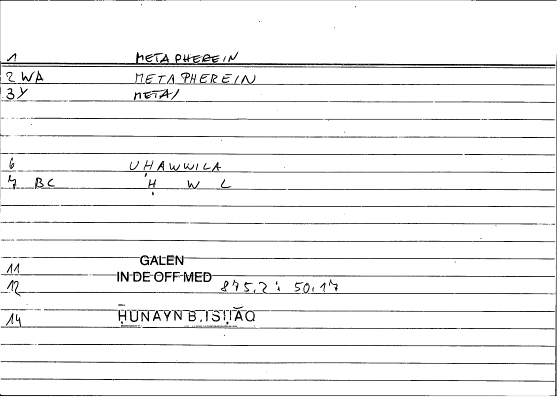 1 METAPHEREIN
2 WA METAPHEREIN
3 Y META/
6 UHAWWILA
7 BC Ḥ W L
11 GALEN
IN DE OFF MED
12 875,2 : 50,17
14 ḤUNAYN B. ISḤĀQ